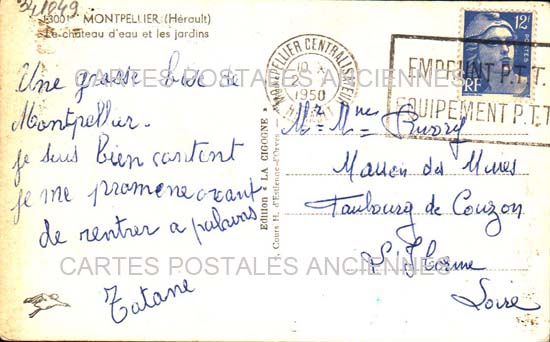 341849
13001 - MONTPELLIER (Hérault)
Le château d'eau et les jardins
Une grosse bise de
Montpellier.
je suis bien content
je me promene avant
de rentrer a palavas
Tatane
Edition "LA CIGOGNE"
7, Cours H. d'Estienne-d'Orves -
MONTPELLIER CENTRALISATEUR
10
1950
HERAULT
12F
POSTES
RF
EMPRUNT P.T.T.
EQUIPEMENT P.T.T
Mr = Mme
Maison des Mines
Faubourg de Couzon
St Horme
Loire
CARTES POSTALES ANCIENNES
CARTES POSTALES ANCIENNES